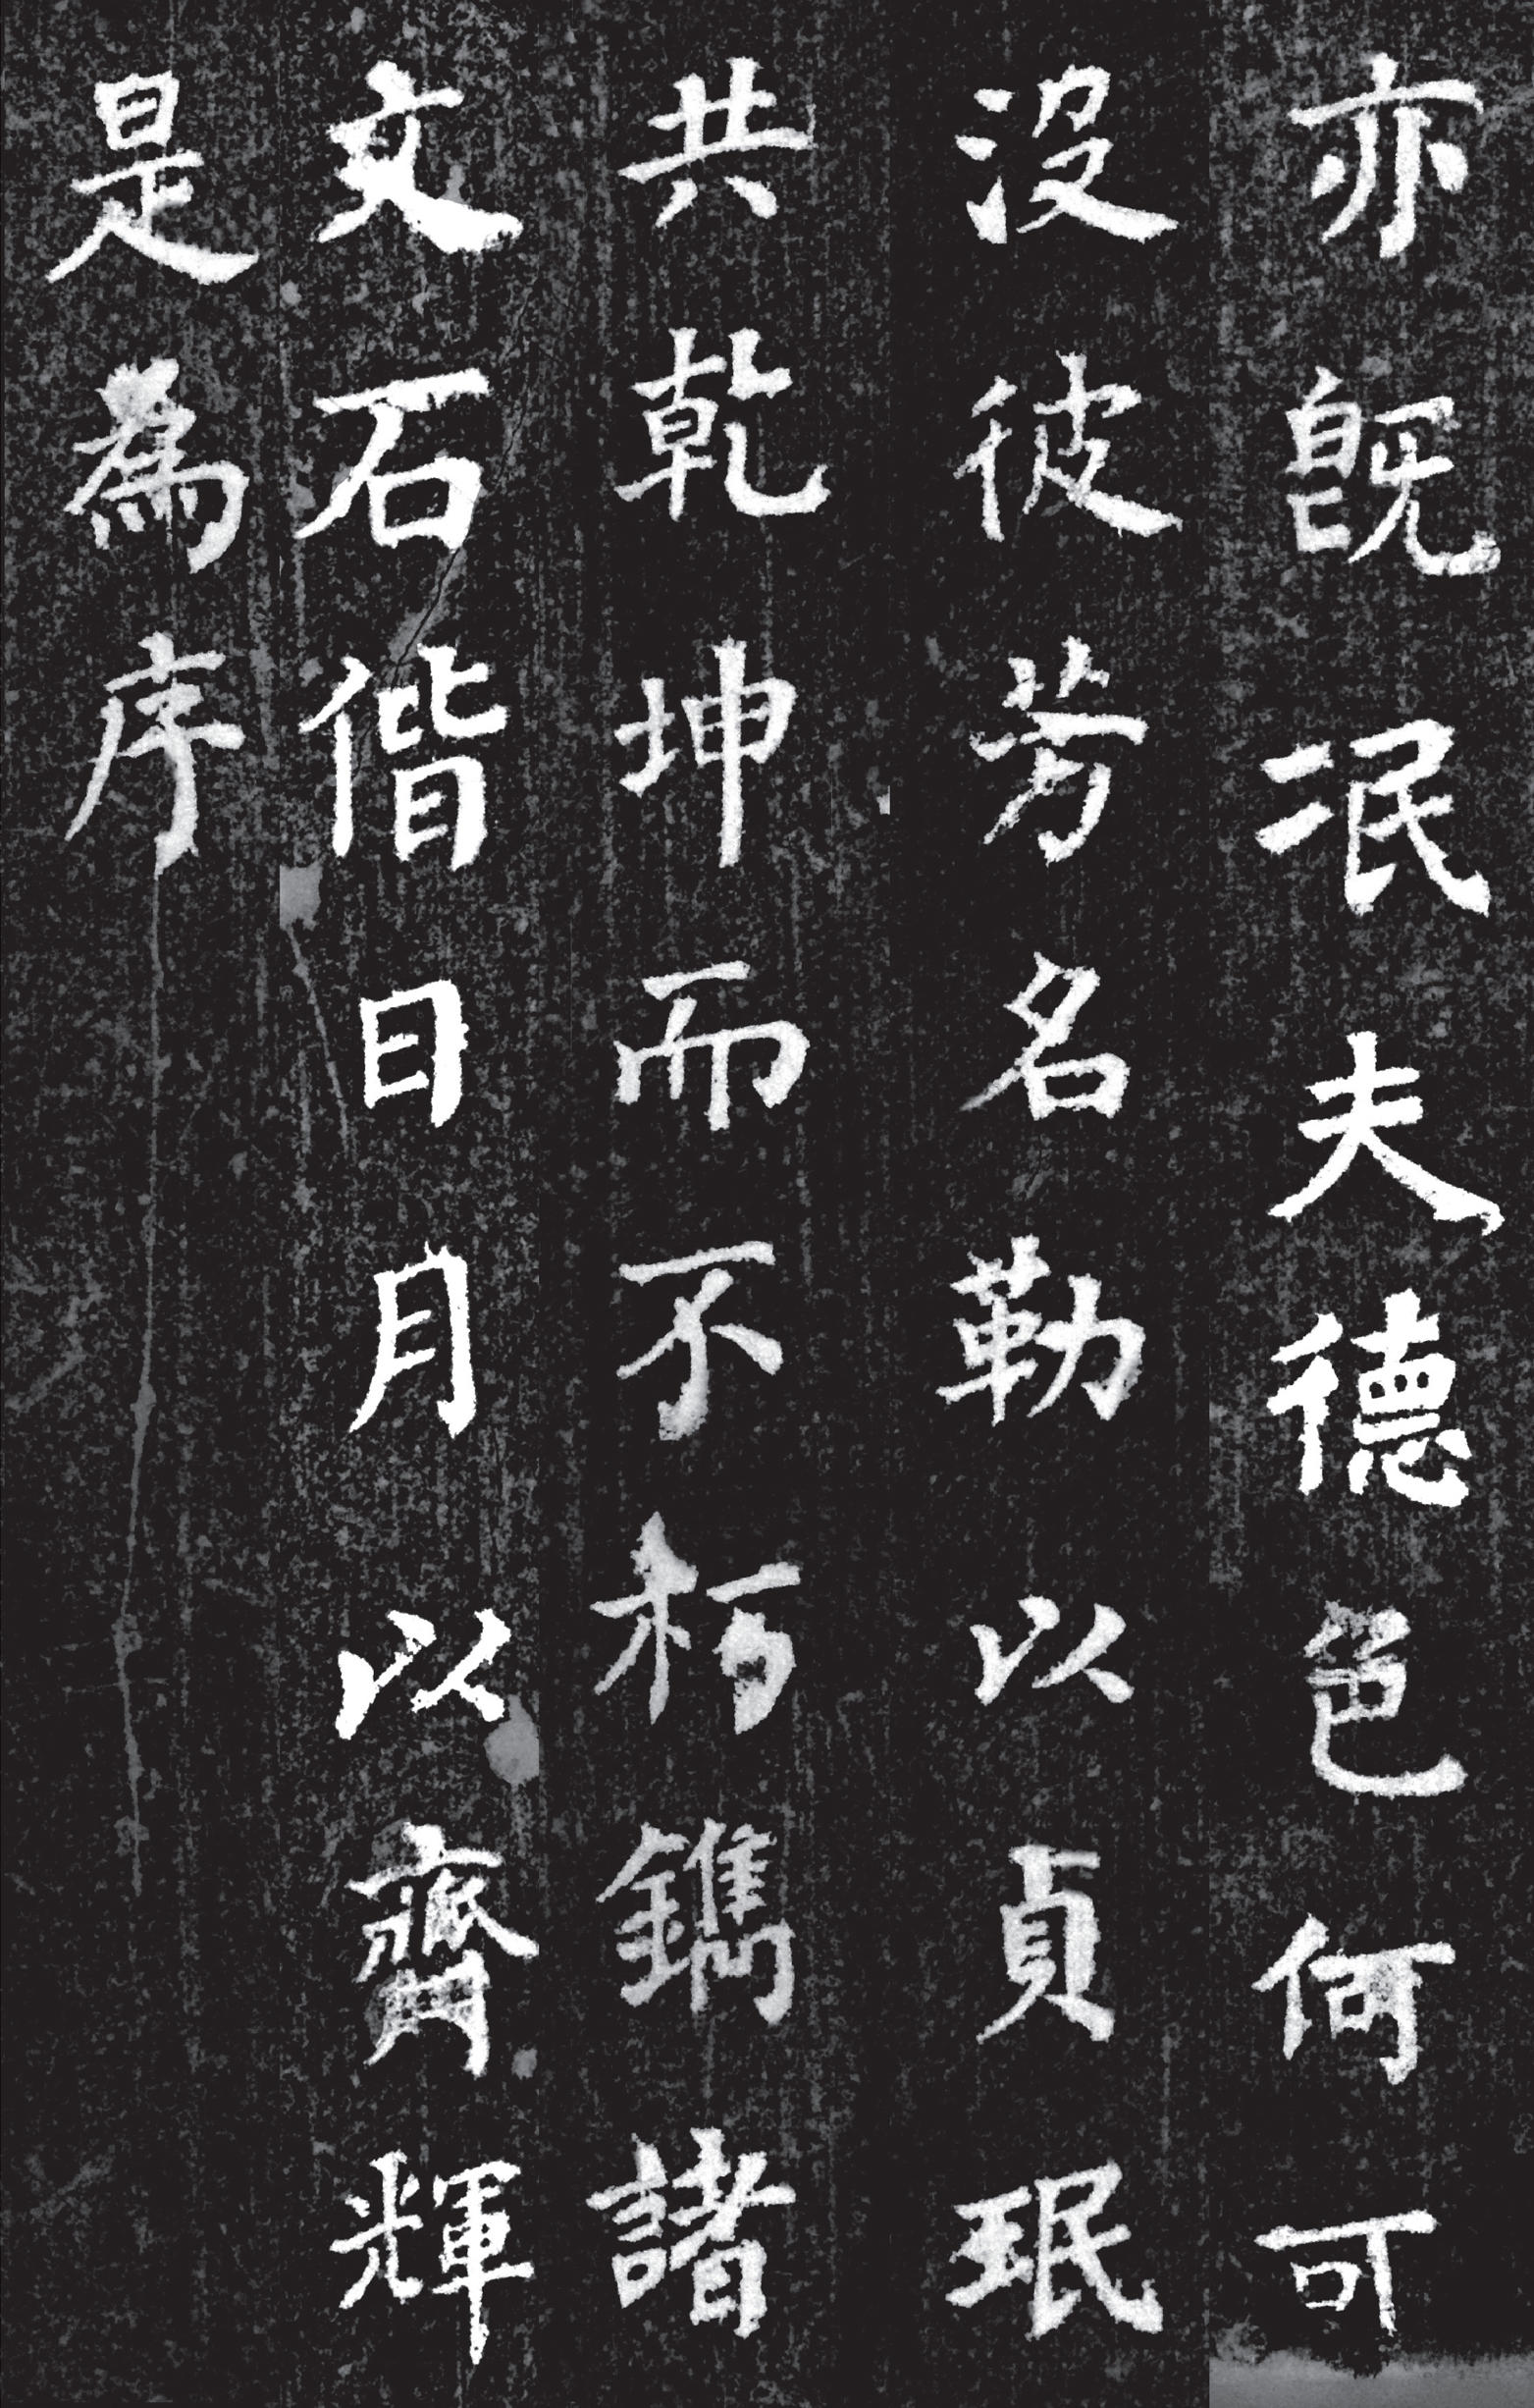 亦既泯夫德邑何可
没彼芳名勒以貞珉
共乾坤而不朽鐫諸
文石偕日月以齊輝
是為序